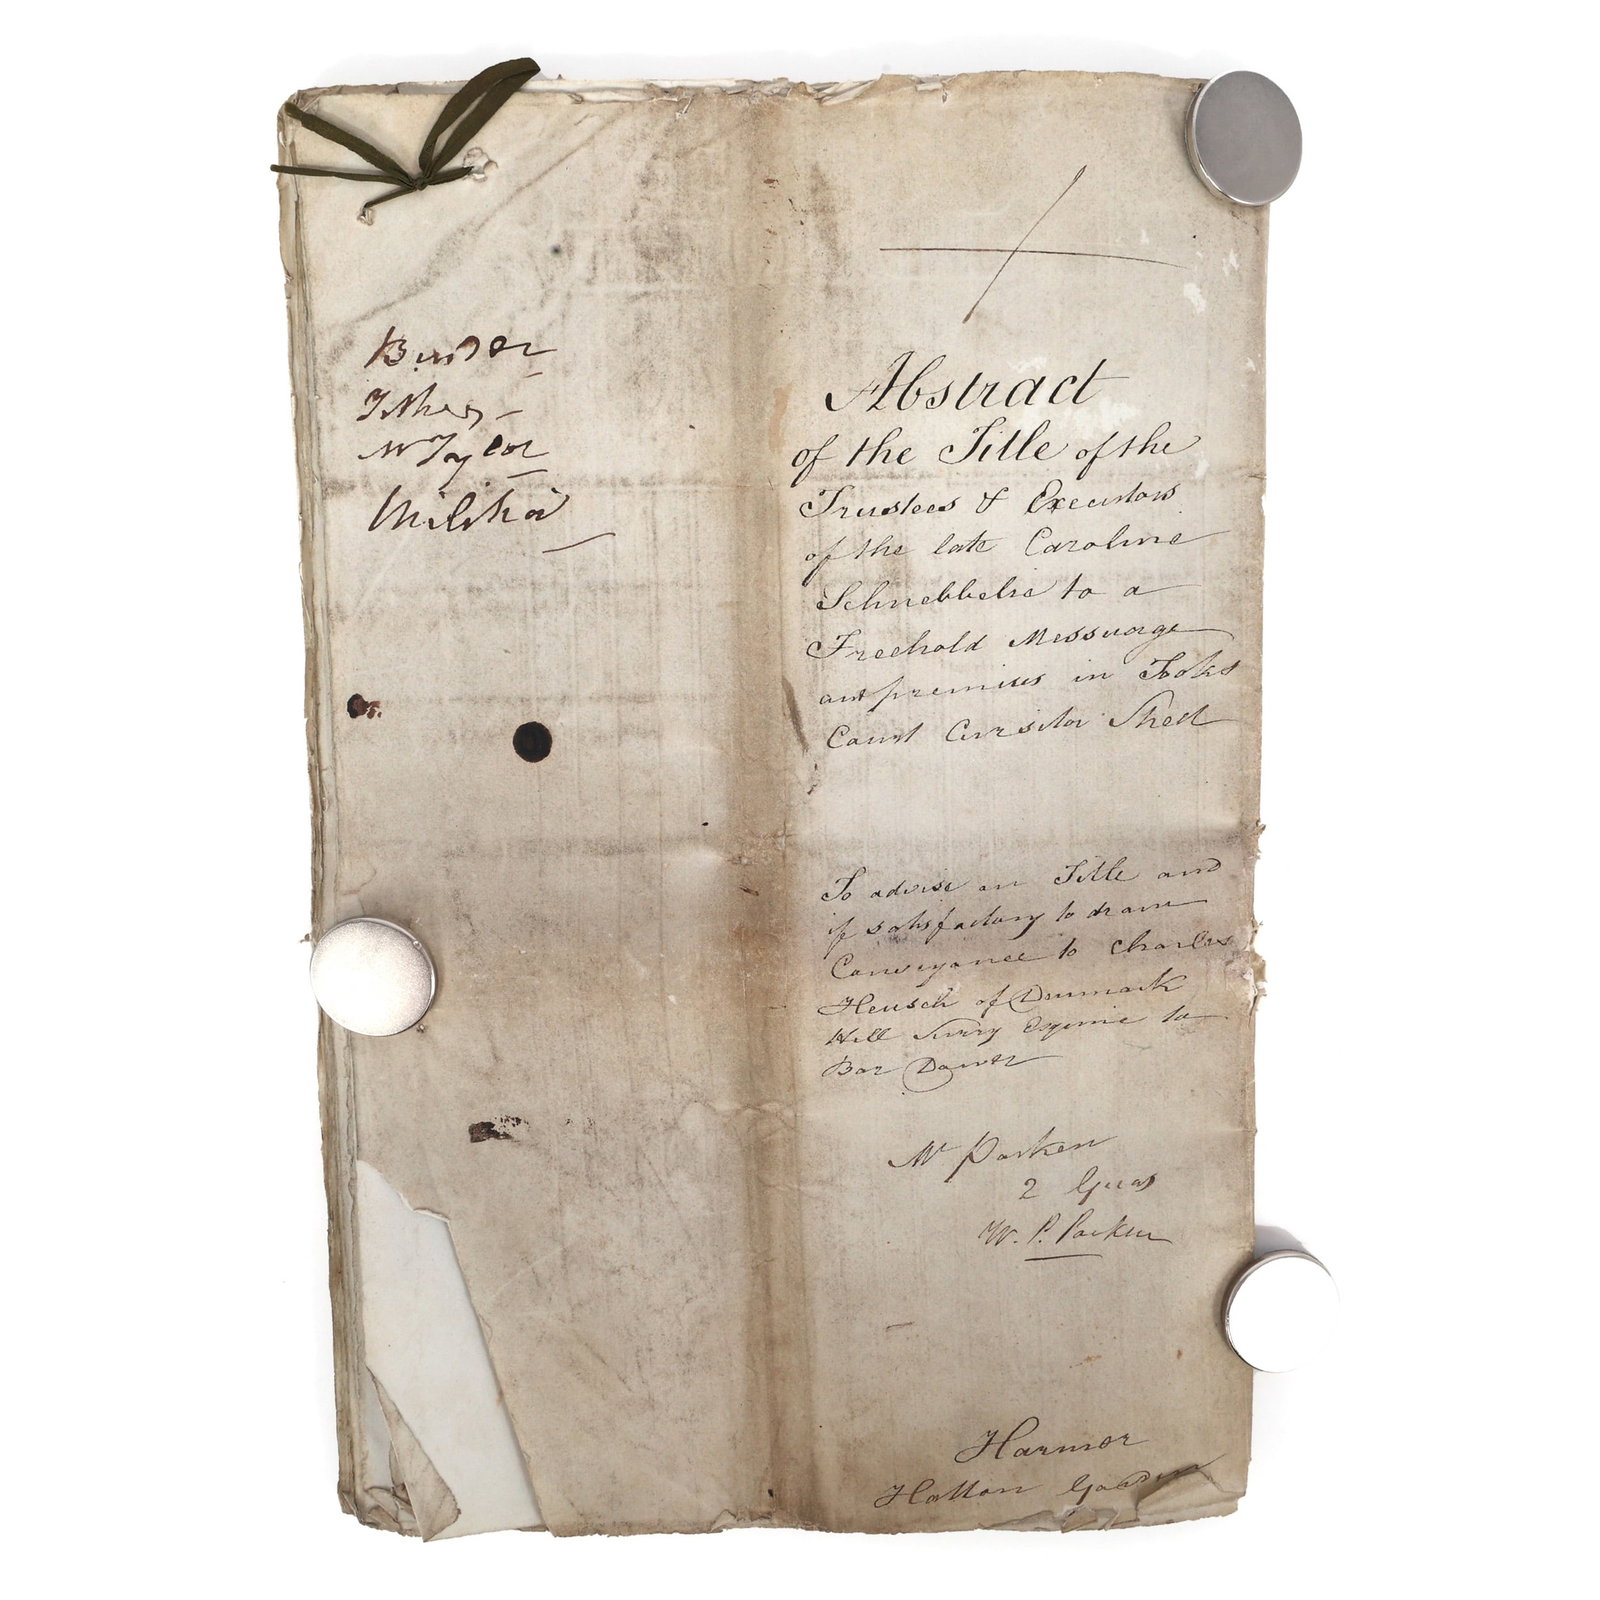 Abstract
of the Title of the
Trustees & Executors
of the late Caroline
Schnebbelie to a
Freehold Messuage
and premises in Tooks
Court Cursitor Street
To advise on Title and
if satisfactory to draw
Conveyance to Charles
Heusch of Denmark
Hill Surry Esquire to
Bar Dower
Mr Parken
2 Guas
W. P. Parken
Harmer
Hatton Garden